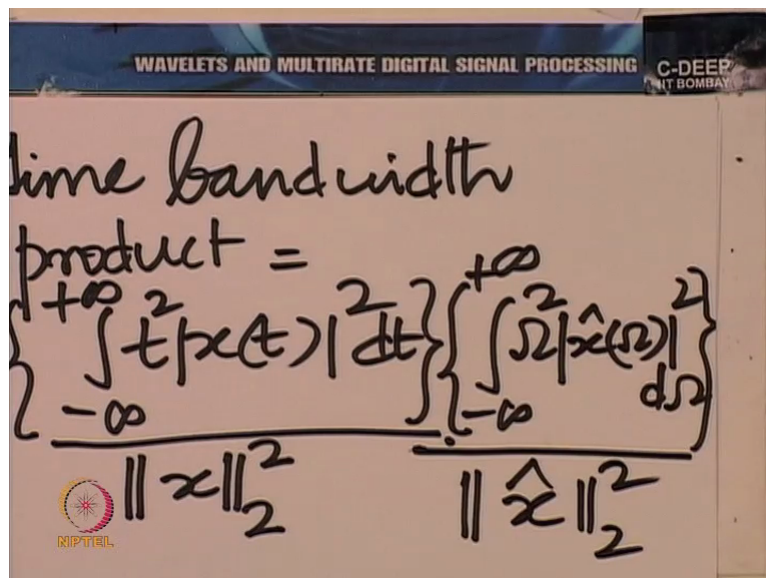 WAVELETS AND MULTIRATE DIGITAL SIGNAL PROCESSING
C-DEEP
IIT BOMBAY
time bandwidth
product =
{ ∫_{-∞}^{+∞} t² |x(t)|² dt } { ∫_{-∞}^{+∞} Ω² |x̂(Ω)|² dΩ }
‖x‖₂² ‖x̂‖₂²
NPTEL